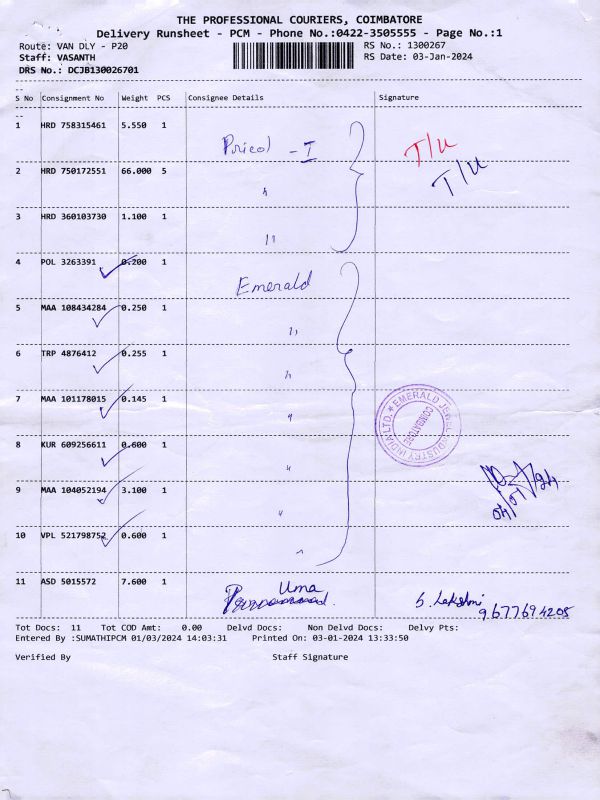 THE PROFESSIONAL COURIERS, COIMBATORE
Delivery Runsheet - PCM - Phone No.:0422-3505555 - Page No.:1
Route: VAN DLY - P20 RS No.: 1300267
Staff: VASANTH RS Date: 03-Jan-2024
DRS No.: DCJB130026701
S No Consignment No Weight PCS Consignee Details Signature
1 HRD 758315461 5.550 1 Pricol - I T/U
2 HRD 750172551 66.000 5 " T/U
3 HRD 360103730 1.100 1 "
4 POL 3263391 0.200 1 Emerald
5 MAA 108434284 0.250 1 "
6 TRP 4876412 0.255 1 "
7 MAA 101178015 0.145 1 "
EMERALD JEWEL INDUSTRY INDIA LTD. ★
COIMBATORE
8 KUR 609256611 0.600 1 "
9 MAA 104052194 3.100 1 "
10 VPL 521798752 0.600 1 "
11 ASD 5015572 7.600 1 Uma S. Lakshmi
9677694205
Tot Docs: 11 Tot COD Amt: 0.00 Delvd Docs: Non Delvd Docs: Delvy Pts:
Entered By :SUMATHIPCM 01/03/2024 14:03:31 Printed On: 03-01-2024 13:33:50
Verified By Staff Signature